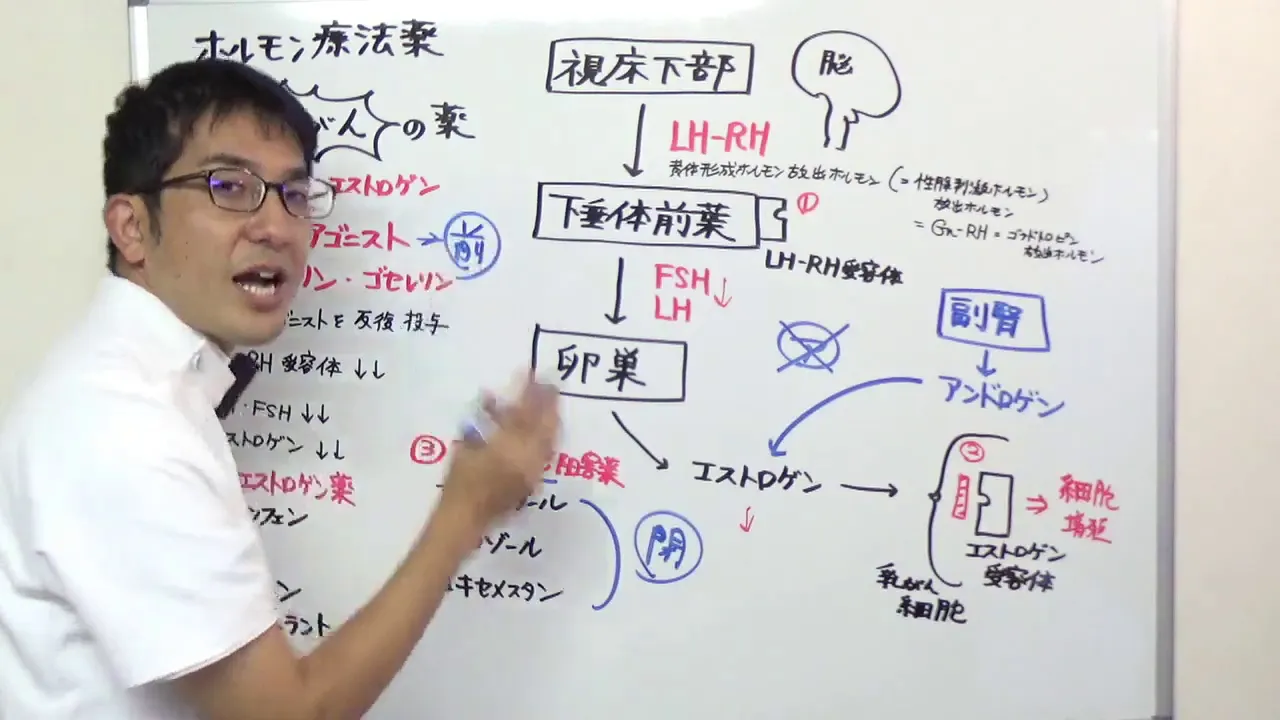 ホルモン療法薬
がん の薬
エストロゲン
アゴニスト → 前
リン・ゴセレリン
ニストを 反復 投与
RH 受容体 ↓↓
FSH ↓↓
ストロゲン ↓↓
エストロゲン薬
フェン
ン
ラント
③ 阻害薬
ゾール
ゾール
キセメスタン
閉
視床下部
脳
LH-RH
黄体形成ホルモン放出ホルモン (= 性腺刺激ホルモン
放出ホルモン)
= Gn-RH = ゴナドトロピン
放出ホルモン
下垂体前葉
①
LH-RH受容体
FSH ↓
LH
卵巣
副腎
ア
アンドロゲン
エストロゲン
↓
②
エストロゲン
受容体
細胞
増殖
乳がん
細胞